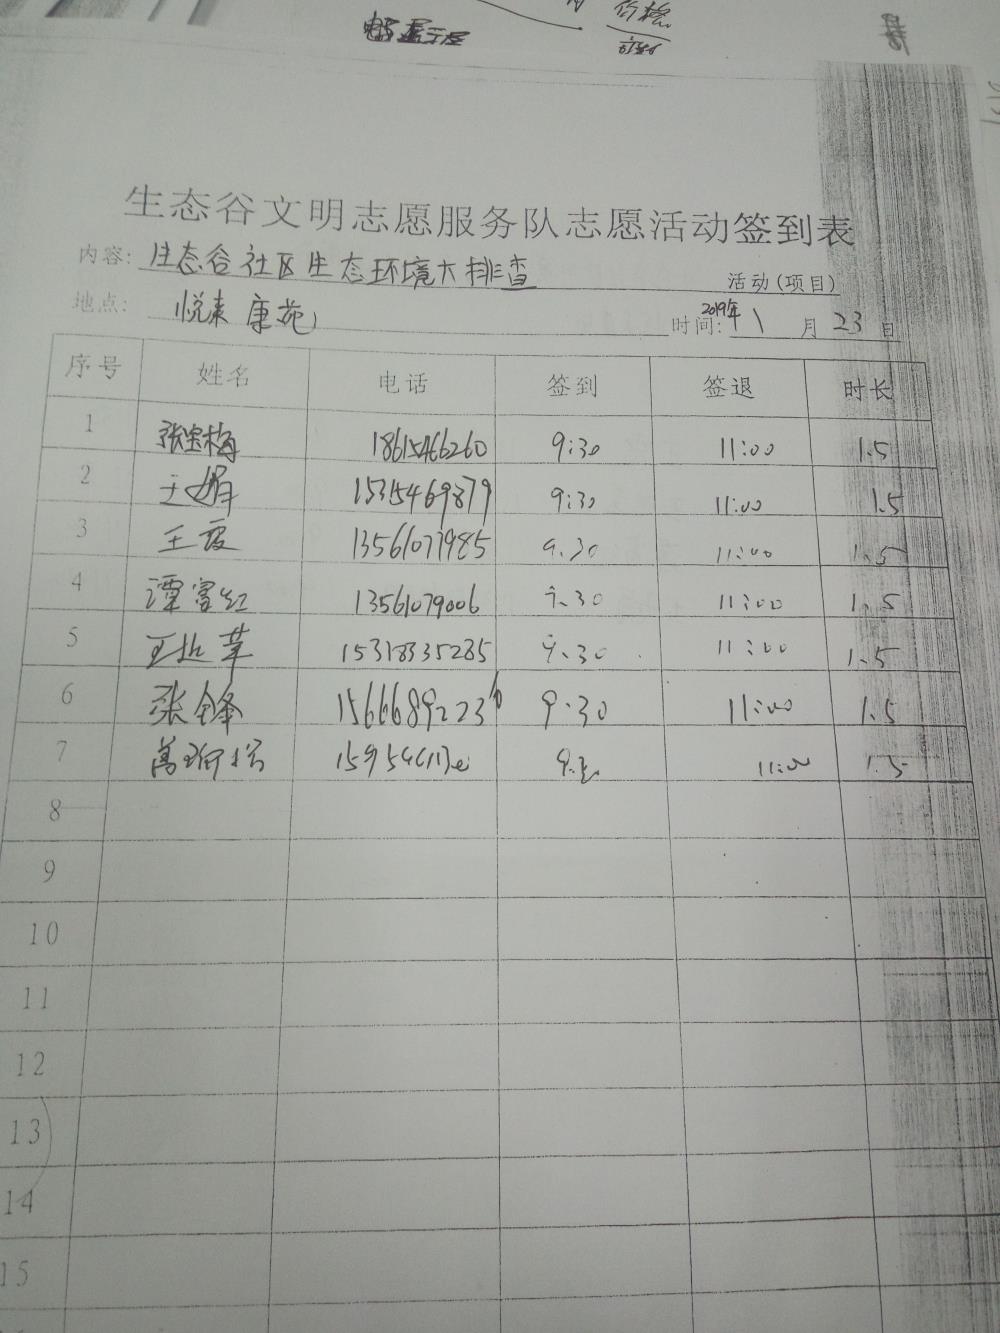 生态谷文明志愿服务队志愿活动签到表
内容: 生态谷社区生态环境大排查 活动(项目)
地点: 悦来康苑 时间: 2019年11月23日
序号 姓名 电话 签到 签退 时长
1 张宝梅 18615466260 9:30 11:00 1.5
2 王娟 15315469879 9:30 11:00 1.5
3 王霞 13561077985 9.30 11:00 1.5
4 谭富红 13561079006 9.30 11:00 1.5
5 15318335285 9.30 11:00 1.5
6 张锋 15666892236 9.30 11:00 1.5
7 11:00 1.5
8
9
10
11
12
13
14
15